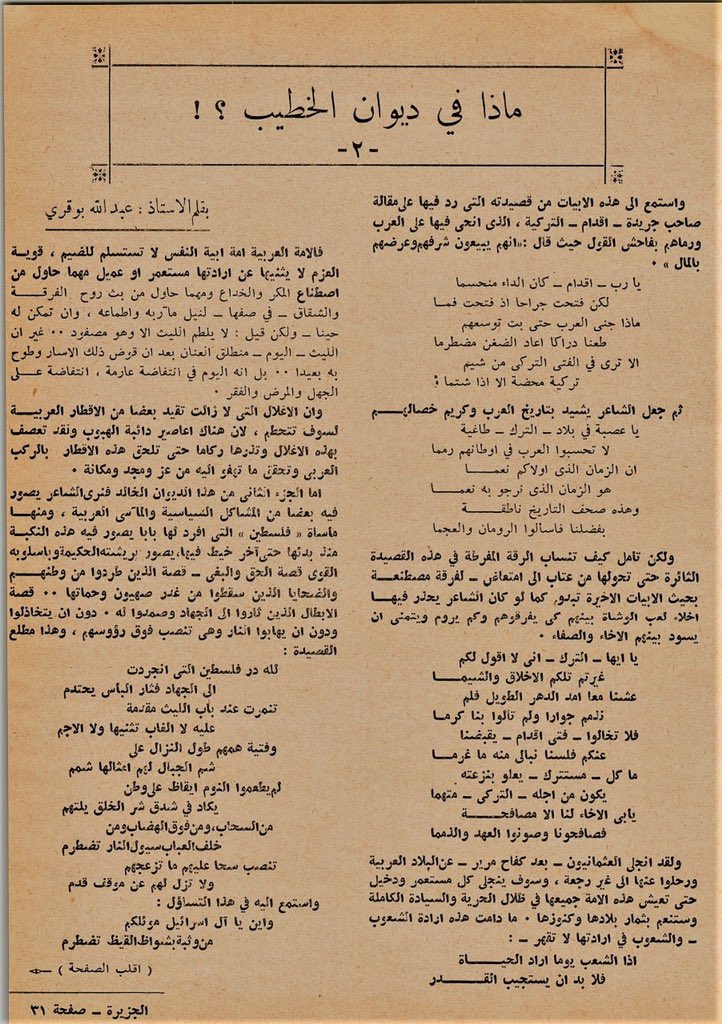 ماذا في ديوان الخطيب ؟ !
-٢-
بقلم الاستاذ : عبد الله بوقري
واستمع الى هذه الابيات من قصيدته التى رد فيها على مقالة
صاحب جريدة ــ اقدام ــ التركية ، الذى انحى فيها على العرب
ورماهم بفاحش القول حيث قال : «انهم يبيعون شرفهم وعرضهم
بالمال » ٠
يا رب ــ اقدام ــ كان الداء منحسما
لكن فتحت جراحا اذ فتحت فمــا
ماذا جنى العرب حتى بت توسعهم
طعنا دراكا اعاد الضغن مضطرما
الا ترى في الفتى التركى من شيم
تركية محضة الا اذا شتما ؟
ثم جعل الشاعر يشيد بتاريخ العرب وكريم خصالهــم
يا عصبة في بلاد ــ الترك ــ طاغية
لا تحسبوا العرب في اوطانهم رمما
ان الزمان الذى اولاكم نعمــــا
هو الزمان الذى نرجو به نعمــا
وهذه صحف التاريخ ناطقــــة
بفضلنا فاسألوا الرومان والعجما
ولكن تامل كيف تنساب الرقة المفرطة في هذه القصيدة
الثائرة حتى تحولها من عتاب الى امتعاض ــ لفرقة مصطنعــة
بحيث الابيات الاخيرة تبدو كما لو كان الشاعر يحذر فيهــا
اخلاء لعب الوشاة بينهم كى يفرقوهم وكم يروم ويتمنى ان
يسود بينهم الاخاء والصفاء ٠
يا ايها ــ الترك ــ انى لا اقول لكم
غيرتم تلكم الاخلاق والشيمــــا
عشنا معا امد الدهر الطويل فلم
نذمم جوارا ولم تالوا بنا كرمــا
فلا تخالوا ــ فتى اقدام ــ يقبضنا
عنكم فلسنا نبالى منه ما غرمــا
ما كل ــ مستترك ــ يعلو بنزعته
يكون من اجله ــ التركى ــ متهما
يابى الاخاء لنا الا مصافحــــة
فصافحونا وصونوا العهد والذمما
ولقد انجلى العثمانيون ــ بعد كفاح مرير ــ عن البلاد العربية
ورحلوا عنها الى غير رجعة ، وسوف ينجلى كل مستعمر ودخيل
حتى تعيش هذه الامة جميعها في ظلال الحرية والسيادة الكاملة
وستنعم بثمار بلادها وكنوزها ٠ ما دامت هذه ارادة الشعوب
ــ والشعوب في ارادتها لا تقهر ــ :
اذا الشعب يوما اراد الحيــــاة
فلا بد ان يستجيب القــــدر
فالامة العربية امة ابية النفس لا تستسلم للضيم ، قوية
العزم لا يثنيها عن ارادتها مستعمر او عميل مهما حاول من
اصطناع المكر والخداع ومهما حاول من بث روح الفرقــــة
والشقاق ــ في صفها ــ لنيل مآربه واطماعه ، وان تمكن له
حينا ــ ولكن قيل : لا يلطم الليث الا وهو مصفود ٠٠ غير ان
الليث ــ اليوم ــ منطلق العنان بعد ان قوض ذلك الاسار وطوح
به بعيدا ٠٠ بل انه اليوم في انتفاضة عارمة ، انتفاضة علــى
الجهل والمرض والفقر ٠
وان الاغلال التى لا زالت تقيد بعضا من الاقطار العربيــة
لسوف تتحطم ، لان هناك اعاصير دائبة الهبوب ونقد تعصف
بهذه الاغلال وتذرها ركاما حتى تلحق هذه الاقطار بالركب
العربى وتحقق ما تهفو اليه من عز ومجد ومكانة ٠
اما الجزء الثانى من هذا الديوان الخالد فترى الشاعر يصور
فيه بعضا من المشاكل السياسية والمآسى العربية ، ومنهــا
مأساة « فلسطين » التى افرد لها بابا يصور فيه هذه النكبة
منذ بدئها حتى آخر خيط فيها، يصور بريشته الحكيمة وباسلوبه
القوى قصة الحق والبغى ــ قصة الذين طردوا من وطنهــم
والضحايا الذين سقطوا من غدر صهيون وحماتها ٠٠ قصة
الابطال الذين ثاروا الى الجهاد وصمدوا له ٠ دون ان يتخاذلوا
ودون ان يهابوا النار وهى تنصب فوق رؤوسهم ، وهذا مطلع
القصيدة :
لله در فلسطين التى انجردت
الى الجهاد فثار البأس يحتدم
تنمرت عند باب الليث مقدمة
عليه لا الغاب تثنيها ولا الاجم
وفتية همهم طول النزال على
شم الجبال لهم امثالها شمم
لم يطعموا النوم ايقاظ على وطن
يكاد في شدق شر الخلق يلتهم
من السحاب، ومن فوق الهضاب ومن
خلف العباب سيول النار تضطرم
تنصب سحا عليهم ما تزعجهم
ولا تزل لهم عن موقف قدم
واستمع اليه في هذا التساؤل :
واين يا آل اسرائيل موئلكم
من وثبة بشواظ القيظ تضطرم
( اقلب الصفحة )
الجزيرة ــ صفحة ٣١